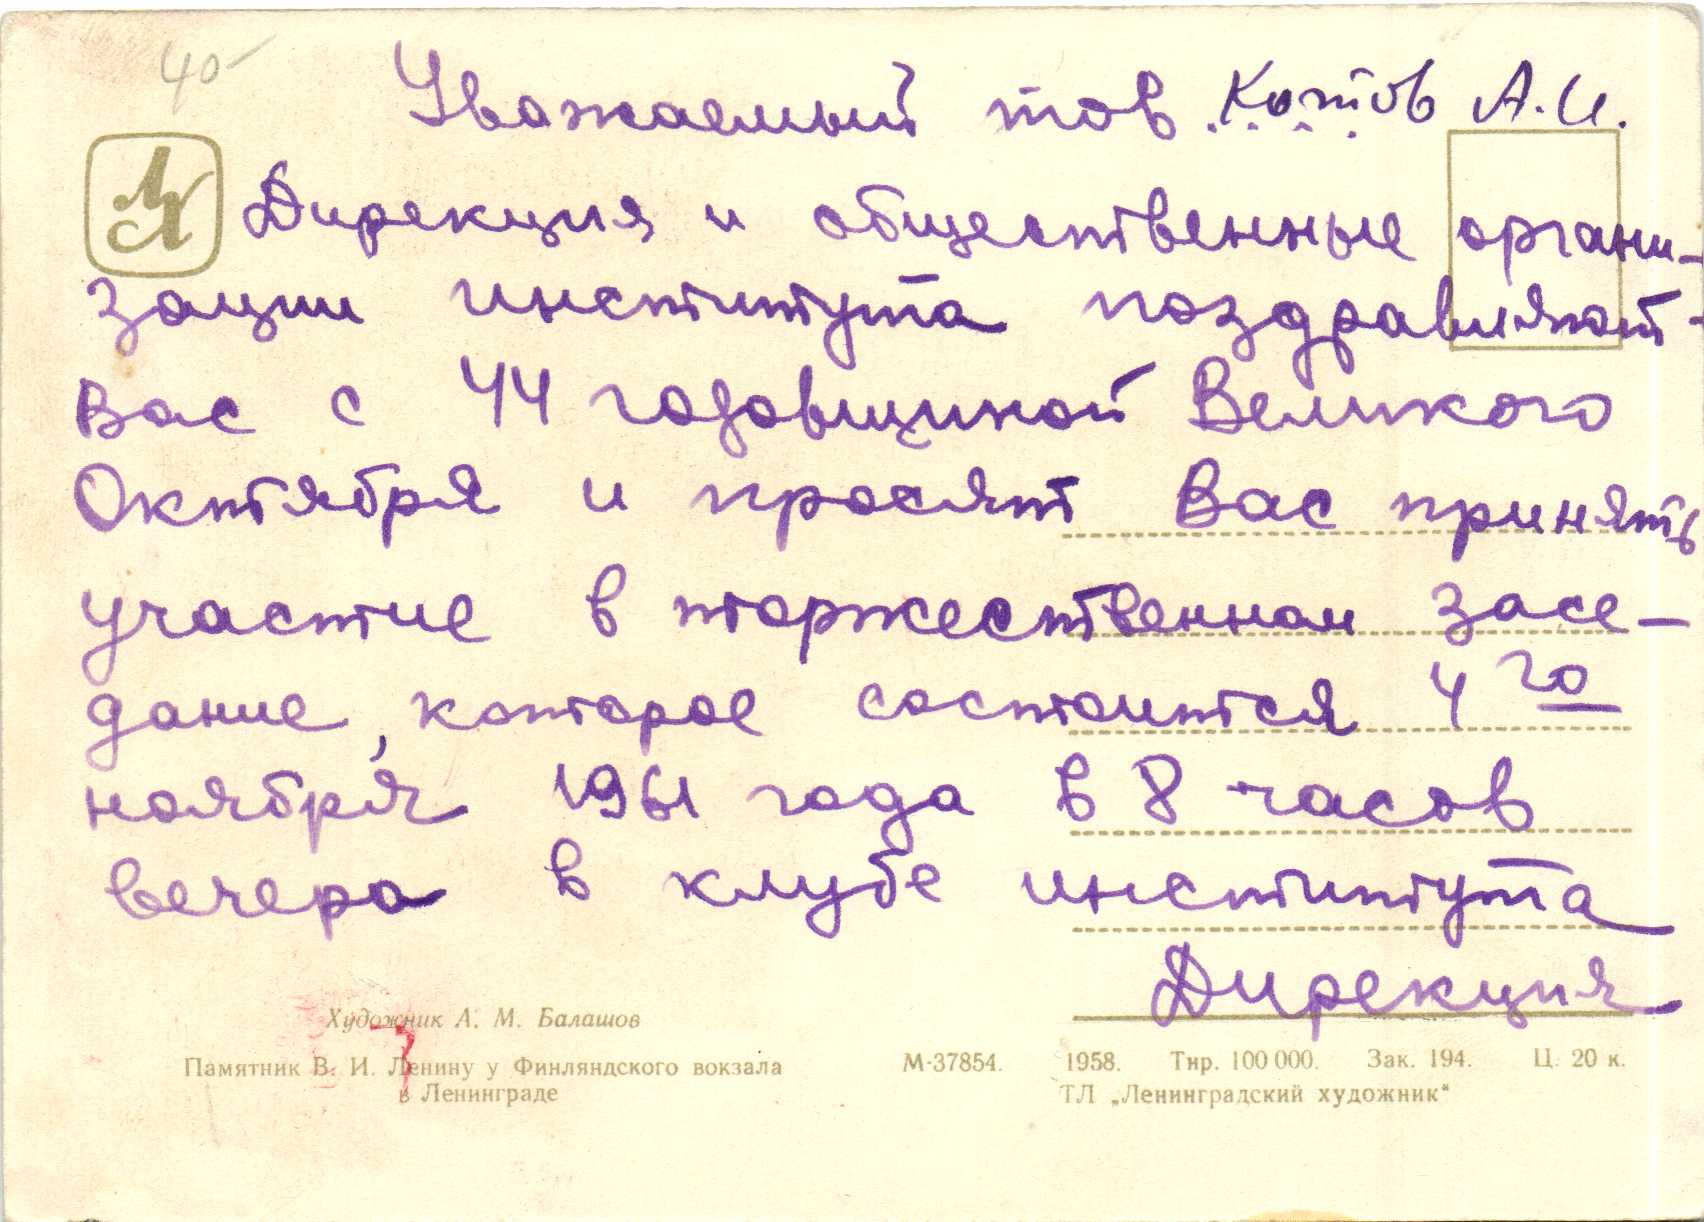 40-
Уважаемый тов. Котов А.И.
Дирекция и общественные органи-
зации института поздравляют
Вас с 44 годовщиной Великого
Октября и просят Вас принять
участие в торжественном засе-
дание, которое состоится 4го
ноября 1961 года в 8 часов
вечера в клубе института
Дирекция
Художник А. М. Балашов
Памятник В. И. Ленину у Финляндского вокзала
в Ленинграде
М-37854. 1958. Тир. 100 000. Зак. 194. Ц. 20 к.
ТЛ „Ленинградский художник“